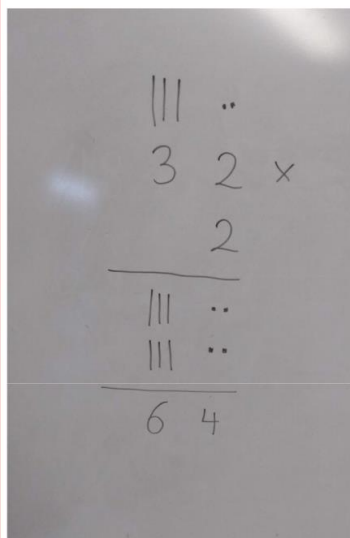 ||| ..
3 2 ×
2
||| ..
||| ..
6 4